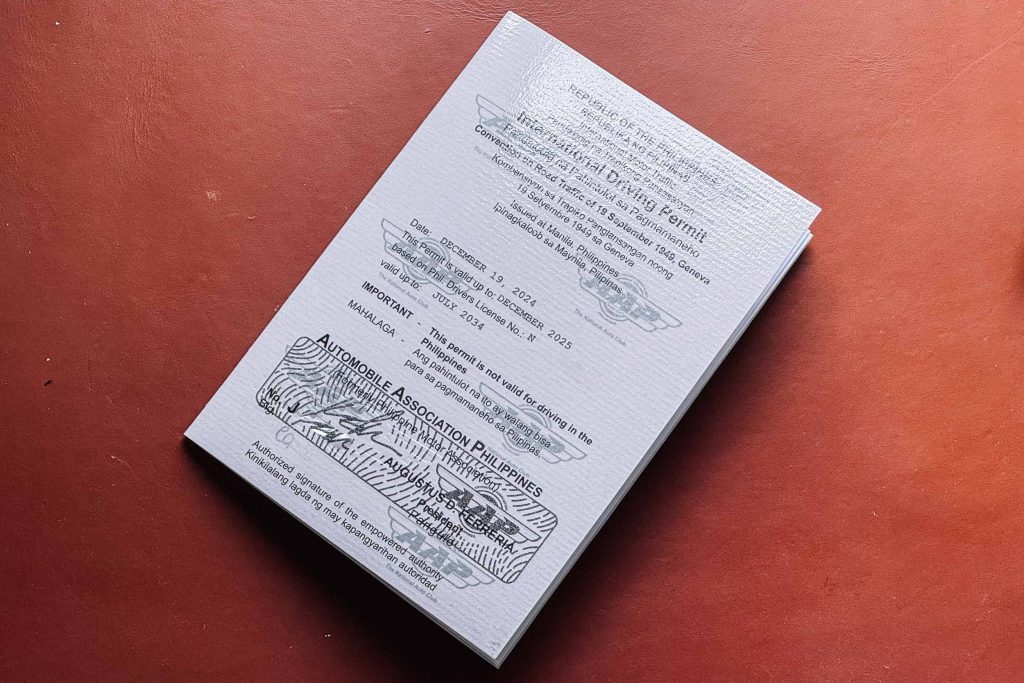 REPUBLIC OF THE PHILIPPINES
REPUBLIKA NG PILIPINAS
International Motor Traffic
Pandaigdig na Trapikong
International Driving Permit
Pandaigdig na Pahintulot sa Pagmamaneho
Convention on Road Traffic of 19 September 1949, Geneva
Kombensyon sa Trapiko Panglansangan noong
19 Setyembre 1949 sa Geneva
Issued at Manila, Philippines
Ipinagkaloob sa Maynila, Pilipinas
Date: DECEMBER 19, 2024
This Permit is valid up to: DECEMBER 2025
based on Phil. Drivers License No.: N
valid up to: JULY 2034
IMPORTANT - This permit is not valid for driving in the
Philippines
MAHALAGA - Ang pahintulot na ito ay walang bisa
para sa pagmamaneho sa Pilipinas.
AUTOMOBILE ASSOCIATION PHILIPPINES
(Formerly Philippine Motor Association)
No. J
Blg.
AUGUSTUS D. FERRERIA
President
Pangulo
Authorized signature of the empowered authority
Kinikilalang lagda ng may kapangyarihan autoridad
AAP
The National Auto Club
AAP
The National Auto Club
AAP
AAP
AAP
The National Auto Club